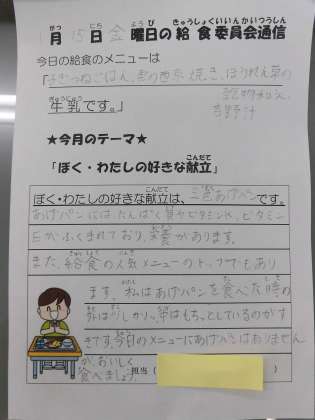 月 15日 金 曜日の給食委員会通信
今日の給食のメニューは
「子ぎつねごはん、魚の西京焼き、ほうれん草の
牛乳です。」
★今月のテーマ★
「ぼく・わたしの好きな献立」
ぼく・わたしの好きな献立は、三色あげパンです。
あげパンにはたんぱく質やビタミンK、ビタミン
Eがふくまれており、栄養があります。
また、給食の人気メニューのトップでもあり
ます。私はあげパンを食べた時の
外はしっかり、中はもちっとしているのがす
きです。今日のメニューにあげパンはありません
が、おいしく
食べましょう。
担当（ ）